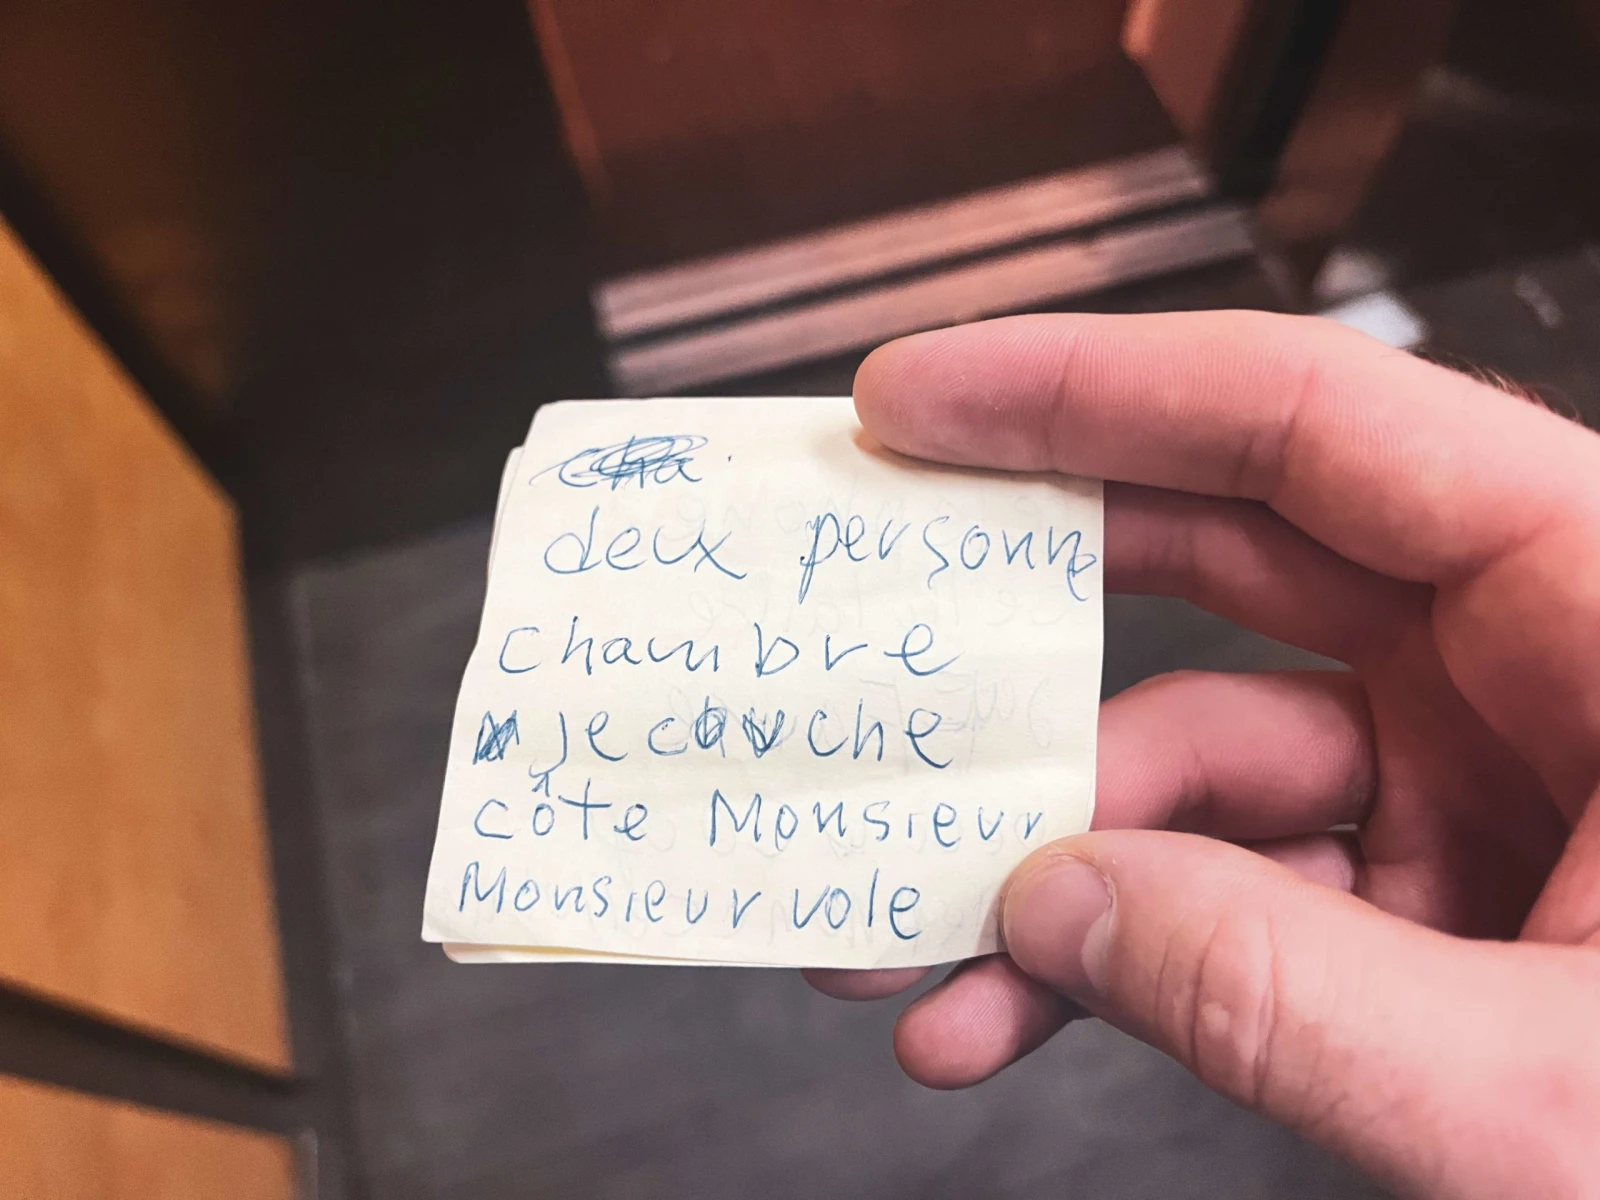 cha
deux personne
chambre
je couche
côte Monsieur
Monsieur vole